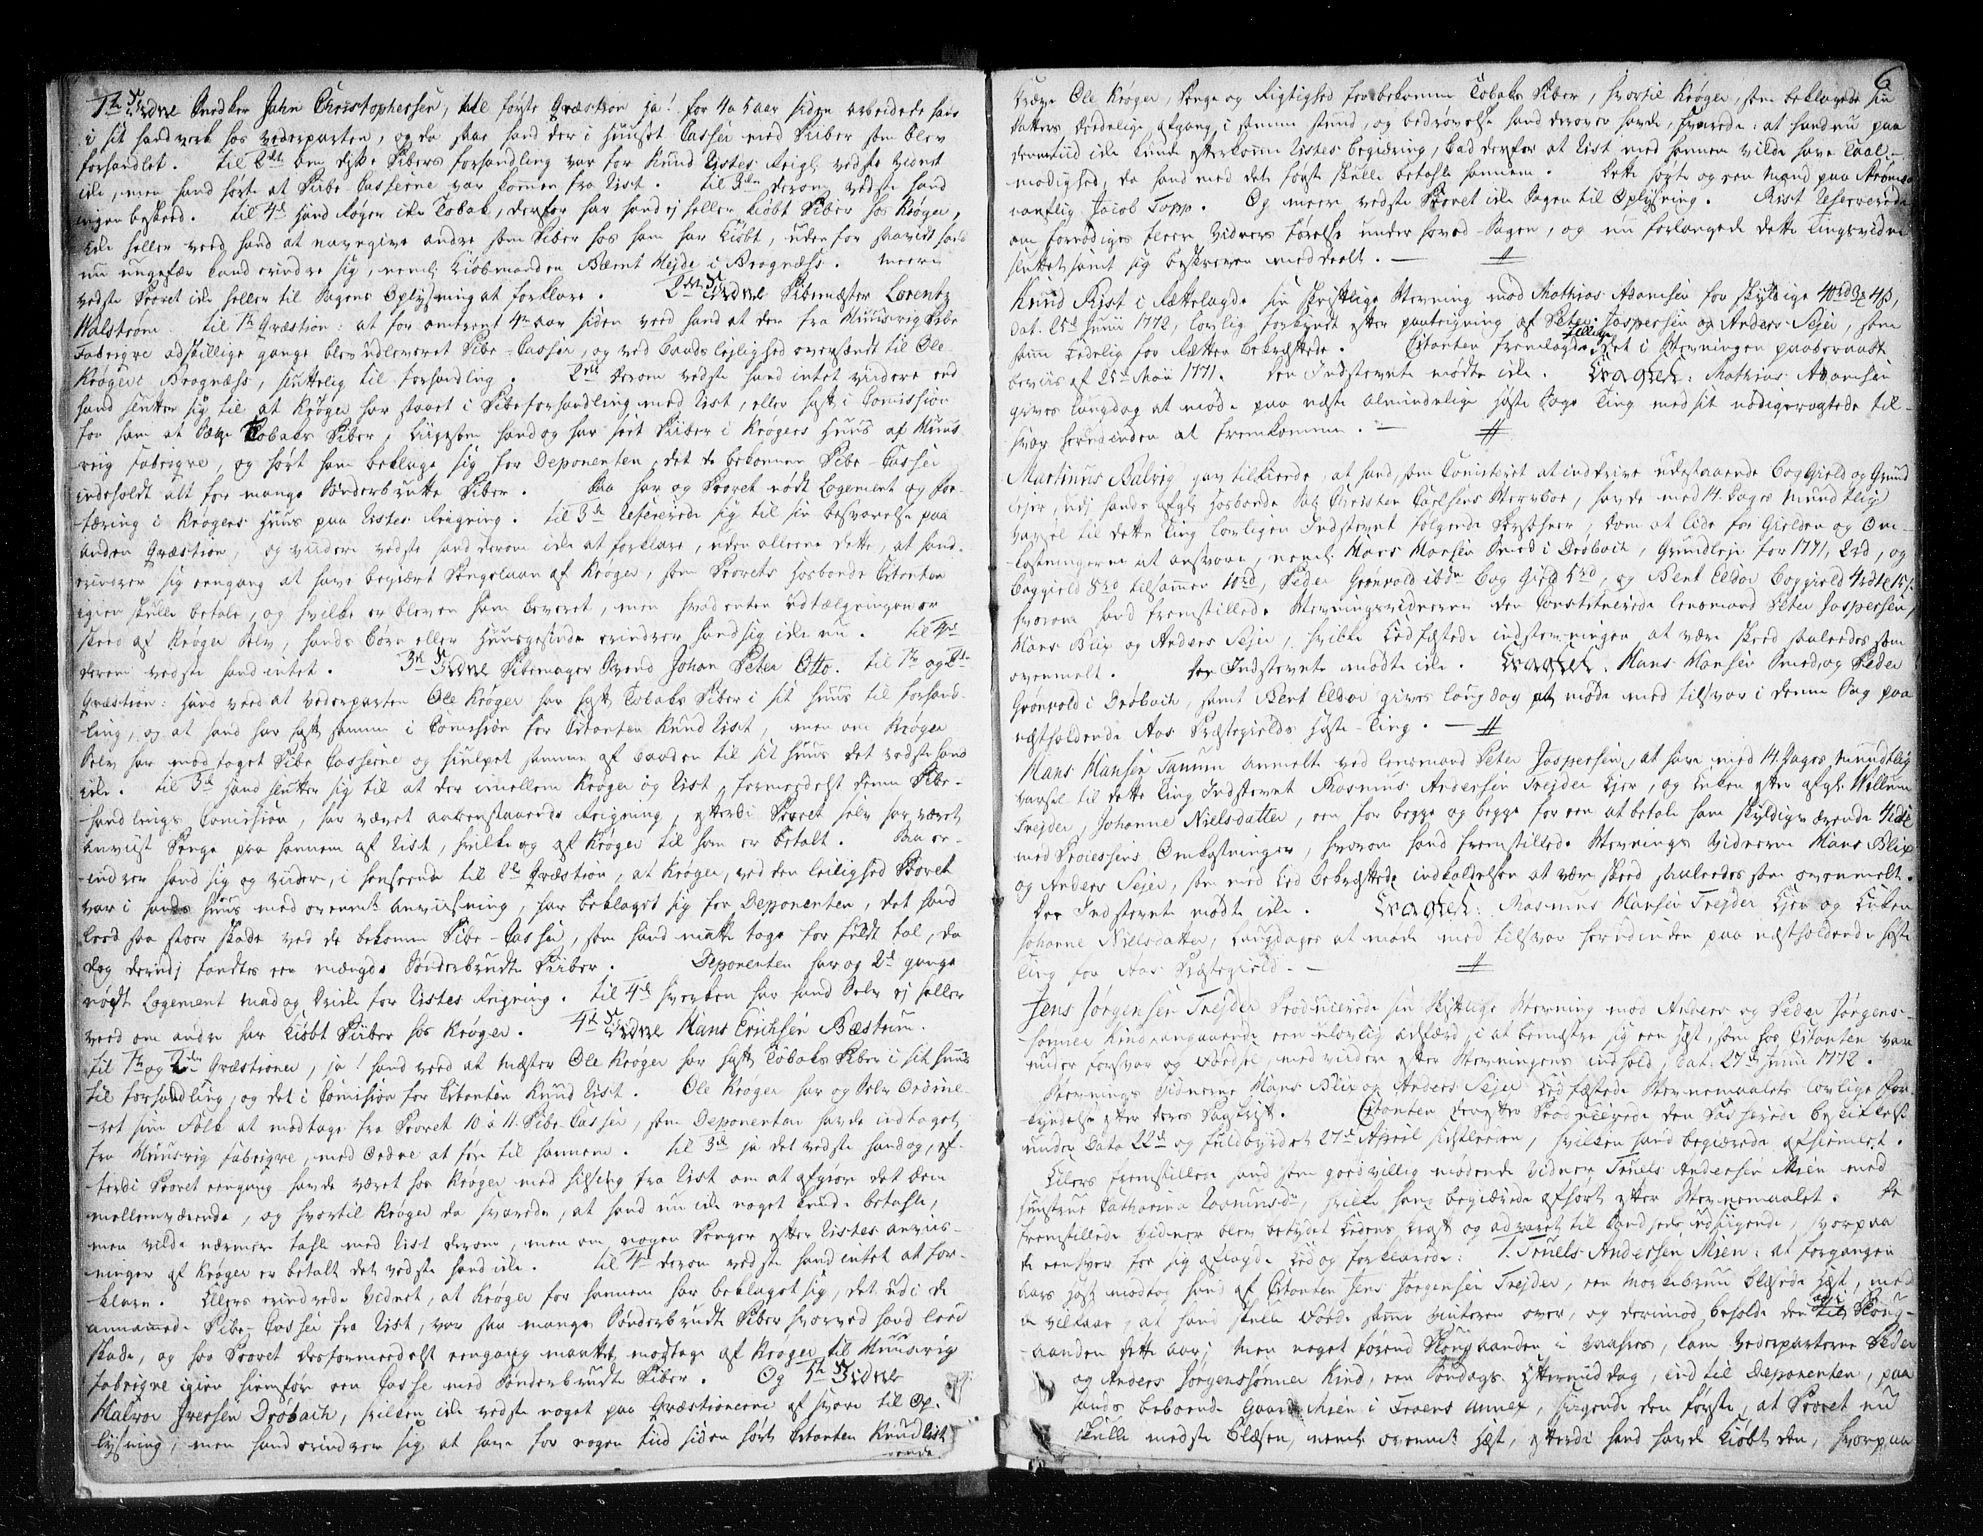 1te Vidne Snedker Jahn Christophersen, til første Qræstion ja! for 4 a 5 aar siden arbeidede han
i sit handverk hos vederparten, og da saae hand der i huuset Casser med Piiber som blev
forhandlet. til 2det om disse Pibers forhandling var for Knud Listes Reigl. vedste vidnet
icke, men hand hørte at Piibe Casserne var kommen fra List. til 3die derom vedste hand
ingen beskeed. til 4de hand Røger icke Tobak, derfor har hand ej heller kiøbt Piber hos Krøger,
icke heller veed hand at navngive andre som Piber hos ham har kiøbt, uden for saavidt hand
nu ungefær kand erindre sig, neml. Kiøbmanden Bærnt Hejde i Bragnæss. meere
vedste Provet icke heller til Sagens Oplysning at forklare. 2det Vidne Pibemæster Lorentz
Walstrøm til 1te Qræstion: at for omtrent 4re aar siden veed hand at der fra Huusvig Pibe
Fabriqve adskillige gange blev udleveret Pibe-Casser, og ved baadslejlighed oversendt til Ole
Krøger i Bragnæss, sluttelig til forhandling. 2det derom vedste hand intet viidere end
hand slutter sig til at Krøger har staaet i Pibeforhandling med List, eller haft i Comission
for ham at sælge Tobaks Piber, liigesom hand og har seet Piiber i Krøgers Huus af Huus
vig Fabriqve, og hørt ham beklage sig for Deponenten, det de bekomne Pibe-Casser
indeholdt alt for mange Sønderbrutte Piber. Saa har og Provet nødt Logement og for-
tæring i Krøgers Huus paa Listes Reigning. til 3de refererede sig til sin besvarelse paa
anden Qræstion, og viidere vedste hand derom icke at forklare, uden alleene dette, at hand
erindrer sig eengang at have begiært Pengelaan af Krøger, som Provets Hosbonde Citanten
igien skulle betale, og hvilke er bleven ham leveret, men hvad enten udtælgningen er
skeed af Krøger Selv, hands Børn eller Huusgesinde erindrer hand sig icke nu. til 4de
derom vedste hand intet. 3de Vidne Pibemager Svend Johan Peter Otto. til 1te og 2de
Qræstion: hand veed at vederparten Ole Krøger har haft Tobaks Piber i sit Huus til forhand-
ling, og at hand har haft samme i Comission for Citanten Knud List, men om Krøger
Selv har modtaget Pibe Casserne og hiulpet samme af baaden til sit Huus det vedste hand
icke. til 3de hand slutter sig til at der imellem Krøger og List, formedelst denne Pibe-
handlings Comission, har været aabenstaaende Reigning, efterdi Provet selv har været
anviist Penge paa hannem af List, hvilke og af Krøger til ham er betalt. Saa er-
indrer hand sig og viidere, i henseende til 2de Qræstion, at Krøger, ved den leilighed Provet
var i hands Huus med ovenmt. anviisning, har beklaget sig for Deponenten, det hand
leed saa stoor skade ved de bekomne Pibe-Casser, som hand matte tage for fuldt tal, da
dog derudi fandtes een mængde Sønderbrudte Piiber. Deponenten har og 2de gange
nødt Logement mad og Drikke for Listes Reigning. til 4de hverken har hand Selv ej heller
veed om andre har kiøbt Piiber hos Krøger. 4de Vidne Hans Erichsen Bæstum.
til 1te og 2den Qræstioner, ja! hand veed at mæster Ole Krøger har haft Tobaks Piber i sit Huus
til forhandling, og det i Comision for Citanten Knud List. Ole Krøger har og Selv Ordine-
ret sine Folk at modtage fra Provet 10 a 11 Pibe Casser, som Deponenten havde indtaget
fra Huusvig fabriqve, med Ordre at føre til hannem. til 3de ja det vedste hand og, ef-
terdi Provet eengang havde været hos Krøger med hilsing fra List om at afgiøre det dem
mellemværende, og hvortil Krøger da svarede, at hand nu icke noget kunde betahle,
men vilde nærmere tahle med List derom, men om nogen Penger efter Listes anviis-
ninger af Krøger er betalt det vedste hand icke. til 4de derom vedste hand intet at for-
klare. Ellers erindrede Vidnet, at Krøger for hannem har beklaget sig, det udi de
annammede Pibe-Casser fra List, var saa mange Sønderbrudt Piber hvorved hand leed
skade, og hos Provet desformedelst eengang maattet modtage af Krøger til Huusvig
fabriqve igien hiemføre een Casse med Sønderbrudte Piber. Og 5te Vidne
Halvor Iversen Drøbach, hvilken icke vedste noget paa Qræstionerne at svare til Op-
lysning, men hand erindrer sig at have for nogen tiid siden hørt Citanten Knud List
6
kræve Ole Krøger, Penge og Rigtighed for bekomne Tobaks Piber, hvortil Krøger, som beklagede sin
datters dødelige afgang i samme stund, og bedrøvelse hand derover havde, svarede: at hand nu paa
den tiid icke kunde efterkomme Listes begiæring, bad derfor at List med hannem vilde have taal-
modighed, da hand med det første skulle betahle hannem. Dette sagte og een mand paa Strømsø
navnlig Jacob Topp. Og meere vedste Provet icke Sagen til Oplysning. List Reserverede
om fornødiges fleere Vidners førelse under hoved-Sagen, og nu forlangede dette tingsvidne
sluttet samt sig beskreven meddeelt. — #
Knud List i Rættelagde sin skriftlige Stevning mod Mathias Adamsen for skyldige 40rd 3ß 4ß,
dat. 25de Junii 1772, lovlig forkyndt efter paategning af Peter Jaspersen og Anders Sejer, som
samme Eedelig for Rætten bekræftede. Citanten fremlagde tillige det i Stevningen paaberaabte
beviis af 25de Maii 1771. Den Indstevnte mødte icke. Eragtet: Mathias Adamsen
gives laugdag at møde paa næste almindelige høste Sage Ting med sit nødigeragtede til-
svar herudinden at fremkomme. — #
Martinus Balvig gav tilkiende, at hand, som Comitteret at inddrive udestaaende Boggield og Grund
leje, udi hands afgl. Hosbonde Sal. Christen Carlsens Stervboe, havde med 14 Dages mundtlig
varsel til dette ting lovligen Indstevnt følgende Persohner, Dom at lide for Gielden og Om-
kostningerne at ansvare, neml. Hans Hansen Smed i Drøbach, Grundleje for 1771, 2rd, og
boggield 8rd tilsammen 10rd, Peder Grønvold ibdn Bog Gield 5rd, og Bent Elldor boggield 4rd 1ß 15ß.
hvorom hand fremstillede Stevningsvidnerne den Constituerede Lensmand Peter Jaspersen,
Hans Blix og Anders Sejer, hvilke Eedfæstede indstevningen at være skeed saaledes som
ovenmelt. De Indstevnte mødte icke. Eragtet. Hans Hansen Smed, og Peder
Grønvold i Drøbach, samt Bent Elldor gives laugdag at møde med tilsvar i denne Sag paa
næstholdende Aas Præstegields høste-ting. — #
Hans Hansen Tanum anmelt ved Lensmand Peter Jaspersen, at have med 14 Dages mundtlig
varsel til dette ting Indstevnt Rasmus Andersen Trejder Ejer, og Enken efter afgl. Willum
Trejder, Johanne Nielsdatter, een for begge og begge for een at betale ham skyldigværende 4rdr
med Processens Omkostninger, hvorom hand fremstillede Stevnings Vidnerne Hans Blix
og Anders Sejer, som med Eed bekræftede indkaldelsen at være skeed saaledes som ovenmelt.
De Indstevnte mødte icke. Eragtet: Rasmus Hansen Trejder Ejer og Enken
Johanne Nielsdatter, Laugdages at møde med tilsvar herudinden paa næstholdende høste
ting for Aas Præstegield. — #
Jens Jørgensen Trejder Producerede sin Skriftlige Stevning mod Anders og Peder Jørgens-
sønner Kind, angaaende een ulovlig adfærd, i at bemægtie sig een hæst, som hos Citanten var
under forsvar og Fordse, med viidere efter Stevningens indhold, dat. 27de Junii 1772.
Stevnings Vidnerne Hans Blix og Anders Sejer Eedfæstede Stevnemaalets lovlige for-
kyndelse efter deres Paaskrift. Citanten derefter Producerede den Passerede besigtelse
under Dato 22de og fuldbyrdet 27de April sistleden, hvilken hand begiærede afhiemlet.
Ellers fremstillede hand som goedvillig mødende Vidner Truels Andersen Mien med
hustrue Catharina Rasmusdr, hvilke hand begiærede afhørt efter Stevnemaalet. De
fremstillede Vidner blev betydet Eedens Kraft og advaret til Sandheds udsigende, hvorpaa
de eenhver for sig aflagde Eed og forklarede: 1. Truels Andersen Mien: at forgangen
aars høst modtog hand af Citanten Jens Jørgensen Trejder, een mørkebrun Blæsede hæst, med
de vilkaar, at hand skulle Fordre samme Vinteren over, og derimod beholde den til Vaar-
aanden dette aar; Men noget førend Vaaraanden i vaahres, kom Vederparterne Peder
og Anders Jørgenssønner Kind, een Søndags Eftermiddag, ind til Deponenten, paa
hands beboende Gaard Mien i Froens Annex, sigende den første, at Provet nu
skulle medste Blæsen, neml. ovenmt. hæst, efterdi hand havde kiøbt den, hvorpaa